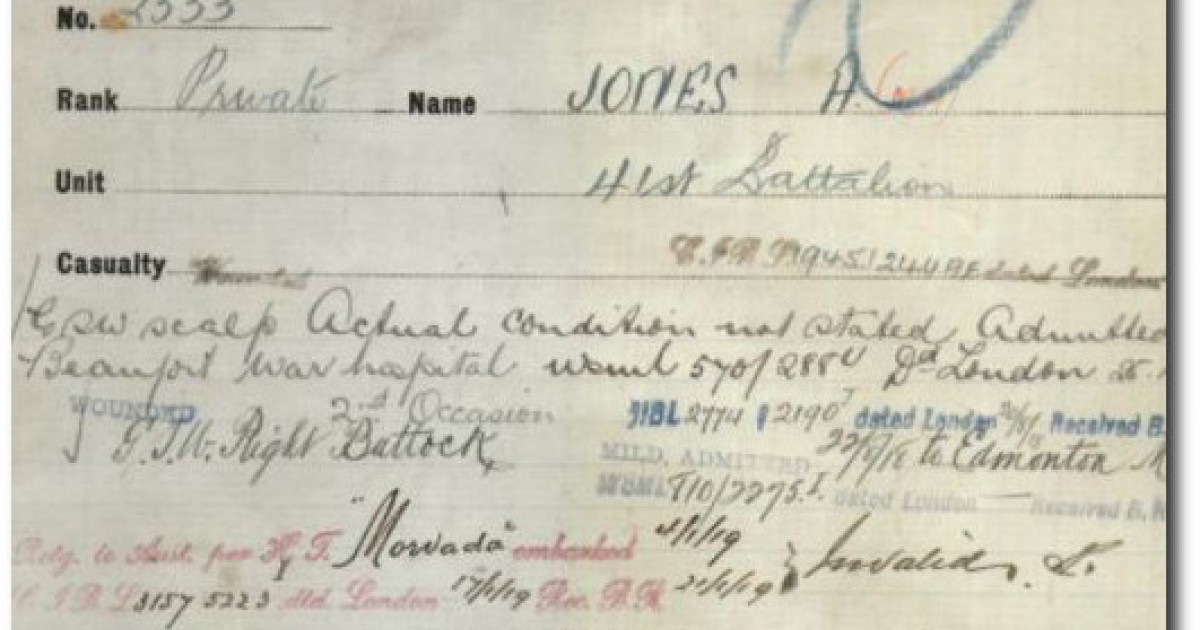 No. 2333
Rank Private Name JONES A.
Unit 41st Battalion
Casualty Wounded dated London
GSW scalp Actual condition not stated Admitted
Beaufort War hospital wsml 570/288 Dd London
WOUNDED 2nd Occasion JIBL 2774 & 2190 dated London Received B.
G.S.W. Right Buttock MILD, ADMITTED 22/8/18 to Edmonton M
WSML 710/2275 dated London — Received B. R
Retg. to Aust. per H.T. "Morvada" embarked 4/1/19 Invalid.
3157 5223 dtd London 17/1/19 Rec. B.R. 21/1/19